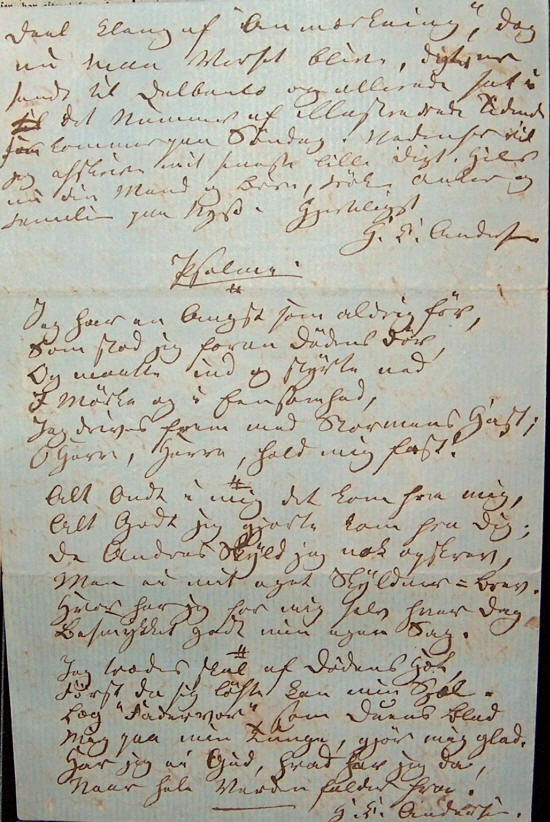 deel Klang af "Anmærkning", dog
nu maa Verset blive, digtet er
sendt til Delbanco og allerede sat i
det Nummer af illustrerede Tidende
som kommer paa Søndag. Nedenfor vil
jeg afskrive mit seneste lille Digt. Hils
nu din Mand og Børn,
Familien paa Hjerteligst
H. C. Andersen
Psalme.
Jeg har en Angst som aldrig før,
Som stod jeg foran Dødens Dør,
Og maatte ind og styrte ned
I Mørke og i Eensomhed,
Jeg drives frem med Stormens Hast;
O Herre, Herre, hold mig fast!
Alt Ondt i mig det kom fra mig,
Alt Godt jeg gjorte kom fra Dig;
De Andres Skyld jeg nok opskrev,
Men ei mit eget Skyldner=Brev.
Hvor har jeg for mig selv hver Dag
Besmykket godt min egen Sag.
Jeg trædes skal af Dødens Hæl,
Først da sig løfte kan min Sjæl.
Læg "Fadervor" som Duens Blad
Mig paa min Tunge, gjør mig glad.
Har jeg ei Gud, hvad har jeg da,
Naar hele Verden falder fra.
H. C. Andersen.